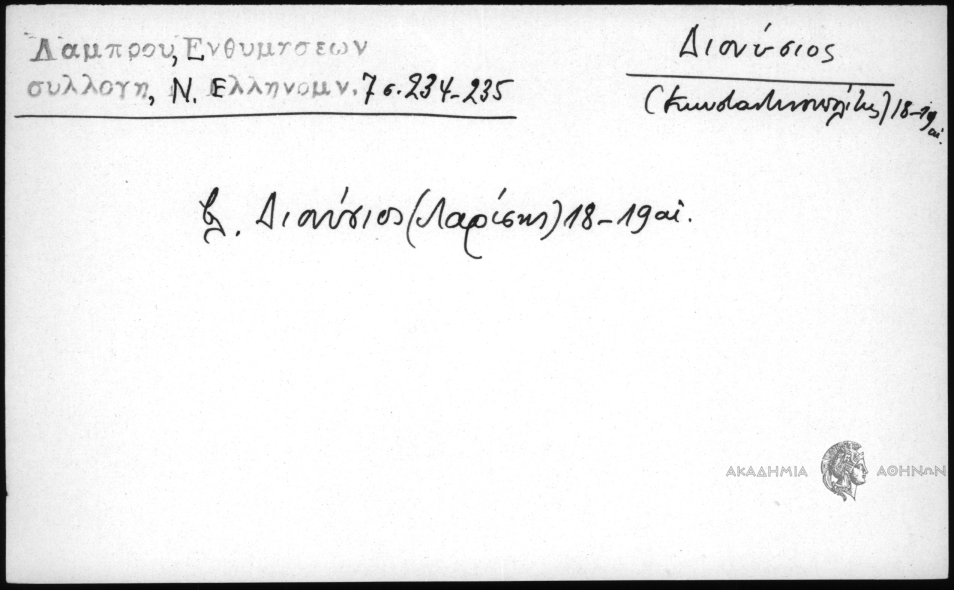 Λαμπρου, Ενθυμησεων
συλλογη, Ν. Ελληνομν. 7 σ. 234-235
Διονύσιος
(Κωνσταντινουπολίτης) 18-19 αἰ.
βλ. Διονύσιος (Λαρίσης) 18-19 αἰ.
ΑΚΑΔΗΜΙΑ ΑΘΗΝΩΝ